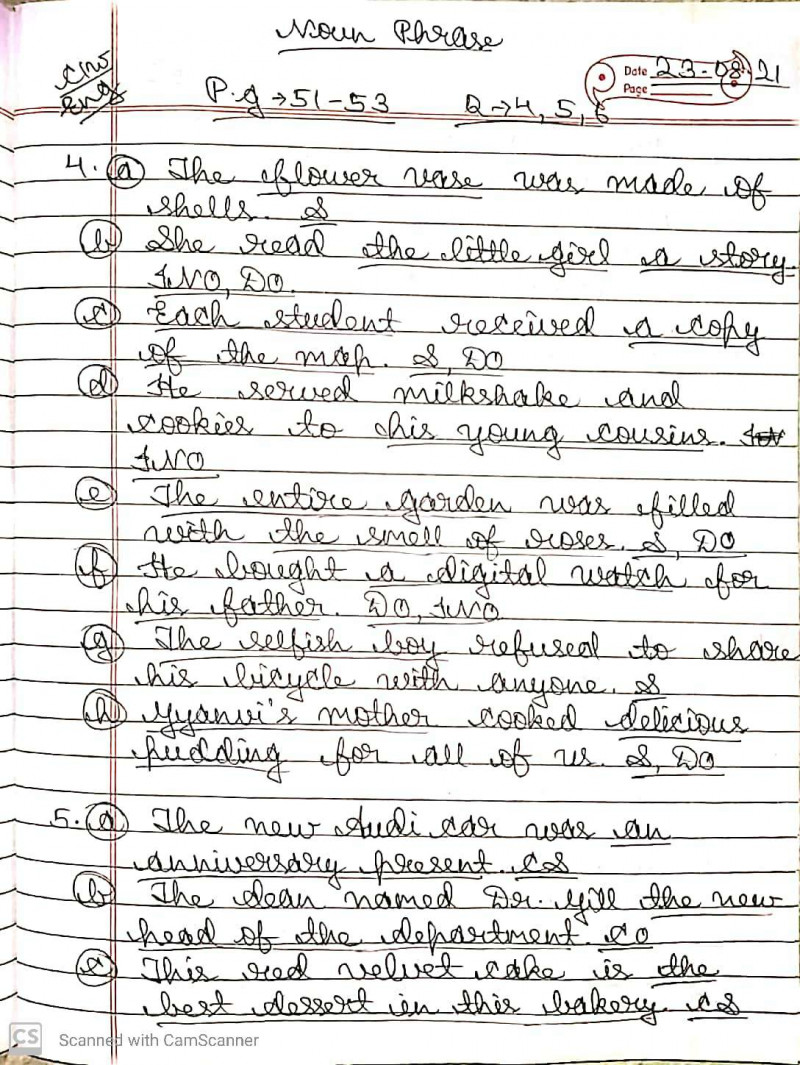 Noun Phrase
C.W
Eng
Date 23-08-21
Page
P.g → 51-53 Q → 4, 5, 6
4. (a) The flower vase was made of
shells. S
(b) She read the little girl a story.
INO, DO.
(c) Each student received a copy
of the map. S, DO
(d) He served milkshake and
cookies to his young cousins.
INO
(e) The entire garden was filled
with the smell of roses. S, DO
(f) He bought a digital watch for
his father. DO, INO
(g) The selfish boy refused to share
his bicycle with anyone. S
(h) Gyanvi's mother cooked delicious
pudding for all of us. S, DO
5. (a) The new Audi car was an
anniversary present. CS
(b) The dean named Dr. Gill the new
head of the department. CO
(c) This red velvet cake is the
best dessert in this bakery. CS
CS Scanned with CamScanner